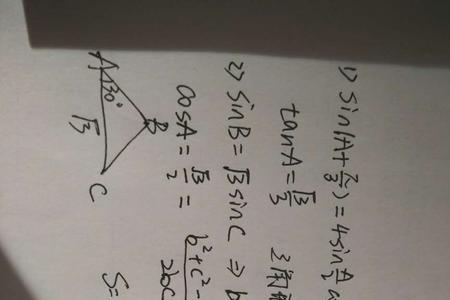 1) sin(A+π/3)=4sin A/2
tanA=√3/3
2) sinB=√3sinC ⇒ b
cosA=√3/2=b²+c²-/2bc
S=
A 30° B √3 C